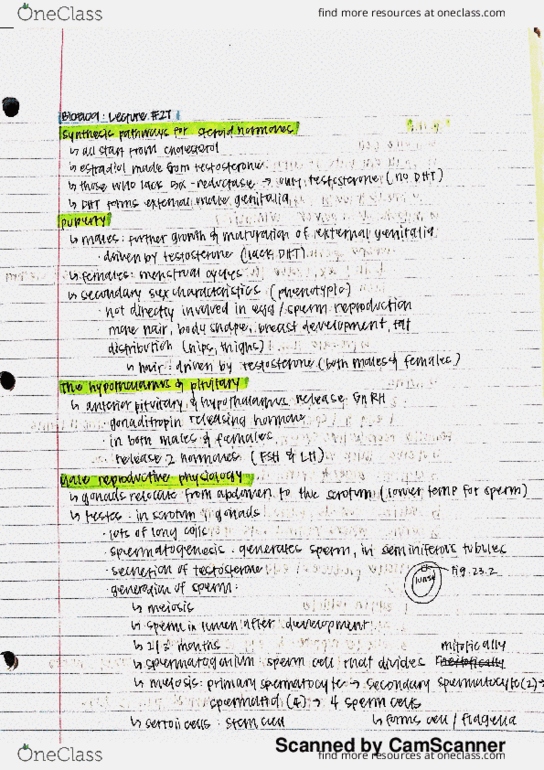 OneClass
find more resources at oneclass.com
Lecture #27
synthesis pathways for steroid hormones
↳ all start from cholesterol
↳ estradiol made from testosterone
↳ those who lack 5α-reductase → only testosterone (no DHT)
↳ DHT forms external male genitalia
puberty
↳ males: further growth & maturation of external genitalia
· driven by testosterone (lack DHT)
↳ females: menstrual cycles
↳ secondary sex characteristics (phenotypic)
· not directly involved in egg/sperm reproduction
more hair, body shape, breast development, fat
distribution (hips, thighs)
↳ hair: driven by testosterone (both males & females)
The hypothalamus & pituitary
↳ anterior pituitary & hypothalamus release GnRH
· gonadotropin releasing hormone
· in both males & females
· release 2 hormones (FSH & LH)
Male reproductive physiology
↳ gonads relocate from abdomen to the scrotum (lower temp for sperm)
↳ testes: in scrotum, gonads
· lots of long coils
· spermatogenesis: generates sperm, in seminiferous tubules
· secretion of testosterone
Fig. 23.2
· generation of sperm:
↳ meiosis
↳ sperm in lumen after development
months
mitotically
↳ spermatogonium sperm cell that divides
↳ meiosis: primary spermatocyte → secondary spermatocyte (2) →
spermatid (4) → 4 sperm cells
↳ sertoli cells: stem cell
↳ forms cell / flagella
Scanned by CamScanner
OneClass
find more resources at oneclass.com